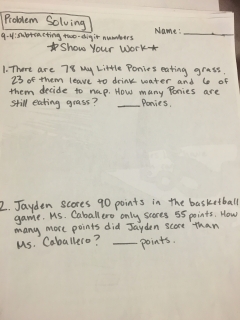 Problem Solving
Name:
9-4: subtracting two-digit numbers
★Show Your Work★
1. There are 78 My Little Ponies eating grass.
23 of them leave to drink water and 6 of
them decide to nap. How many Ponies are
still eating grass? ____ Ponies.
2. Jayden scores 90 points in the basketball
game. Ms. Caballero only scores 55 points. How
many more points did Jayden score than
Ms. Caballero? ____ points.